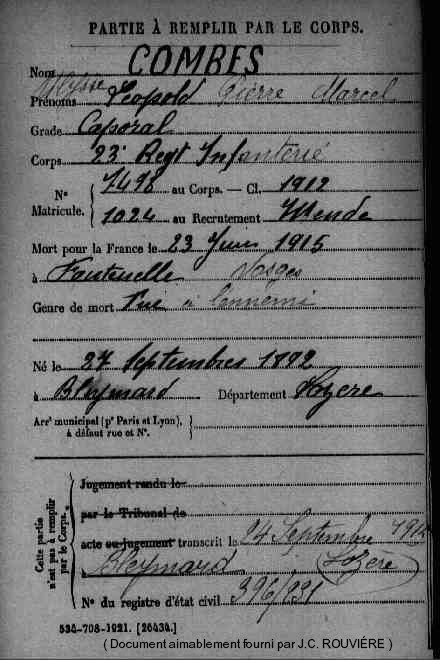 PARTIE À REMPLIR PAR LE CORPS.
Nom COMBES
Ulysse
Prénoms Léopold Pierre Marcel
Grade Caporal
Corps 23e Regt Infanterie
N° Matricule. { 7498 au Corps. — Cl. 1912
1024 au Recrutement Mende
Mort pour la France le 23 Juin 1915
à Fontenelle Vosges
Genre de mort Tué à l'ennemi
Né le 27 Septembre 1892
à Bleymard Département Lozère
Arrt municipal (pr Paris et Lyon), à défaut rue et N°. }
Cette partie n'est pas à remplir par le Corps.
Jugement rendu le
par le Tribunal de
acte ou jugement transcrit le 24 Septembre
à Bleymard (Lozère)
N° du registre d'état civil 396/231
534-708-1921. [26434.]
( Document aimablement fourni par J.C. ROUVIÈRE )